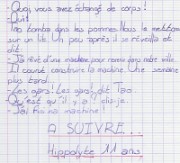 - Quoi, vous avez échangé de corps!
- Oui!
Tao tomba dans les pommes. Nous le mettions
sur un lit. Un peu après il se réveilla et
dit:
- J'ai rêvé d'une machine pour revenir dans votre
Il courut construire la machine. Une semaine
plus tard...
- Les gars! Les gars! dit Tao.
- Qu'est qu'il y a? dis-je.
- J'ai fini ma machine!
A SUIVRE...
Hippolyte 11 ans